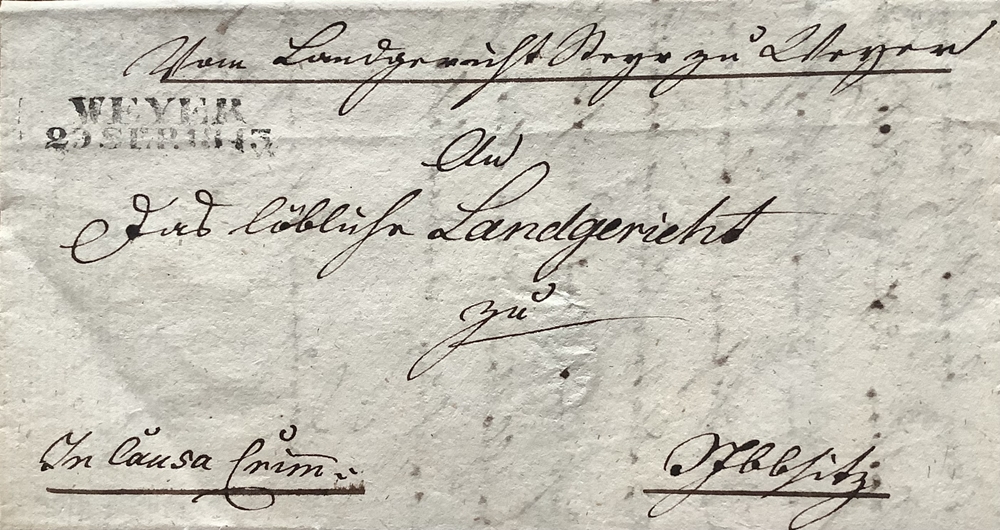 Vom Landgericht Steyr zu Weyer
WEYER
29 SEP. 1843
An
Das löbliche Landgericht
zu
In Causa Crim.
Ybbsitz